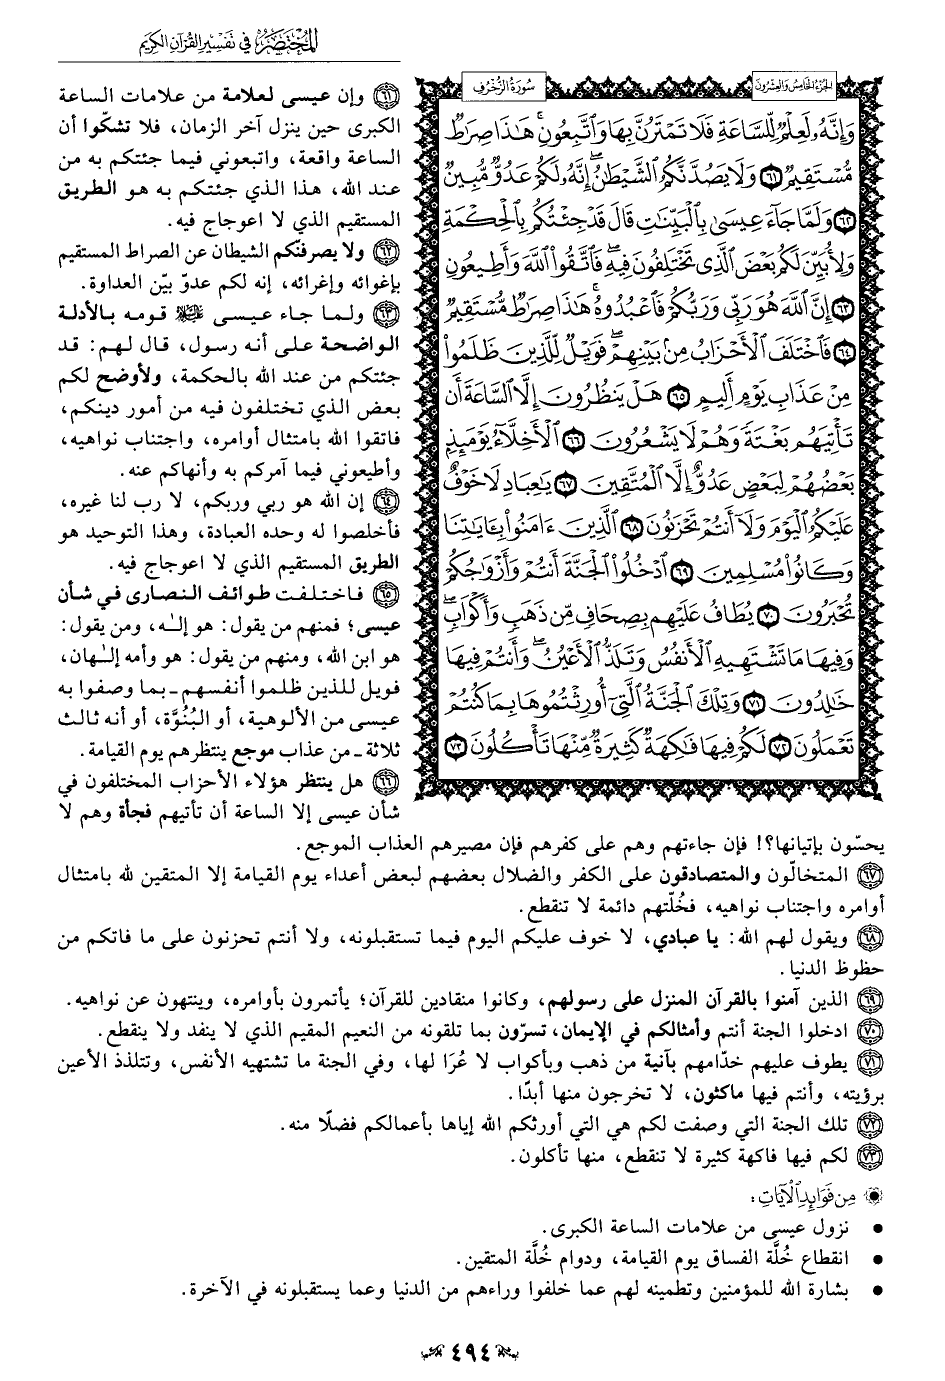 المختصر في تفسير القرآن الكريم
الجزء الخامس والعشرون
سورة الزخرف
وَإِنَّهُۥ لَعِلۡمٞ لِّلسَّاعَةِ فَلَا تَمۡتَرُنَّ بِهَا وَٱتَّبِعُونِۚ هَٰذَا صِرَٰطٞ
مُّسۡتَقِيمٞ ٦١ وَلَا يَصُدَّنَّكُمُ ٱلشَّيۡطَٰنُۖ إِنَّهُۥ لَكُمۡ عَدُوّٞ مُّبِينٞ
٦٢ وَلَمَّا جَآءَ عِيسَىٰ بِٱلۡبَيِّنَٰتِ قَالَ قَدۡ جِئۡتُكُم بِٱلۡحِكۡمَةِ
وَلِأُبَيِّنَ لَكُم بَعۡضَ ٱلَّذِي تَخۡتَلِفُونَ فِيهِۖ فَٱتَّقُواْ ٱللَّهَ وَأَطِيعُونِ
٦٣ إِنَّ ٱللَّهَ هُوَ رَبِّي وَرَبُّكُمۡ فَٱعۡبُدُوهُۚ هَٰذَا صِرَٰطٞ مُّسۡتَقِيمٞ
٦٤ فَٱخۡتَلَفَ ٱلۡأَحۡزَابُ مِنۢ بَيۡنِهِمۡۖ فَوَيۡلٞ لِّلَّذِينَ ظَلَمُواْ
مِنۡ عَذَابِ يَوۡمٍ أَلِيمٍ ٦٥ هَلۡ يَنظُرُونَ إِلَّا ٱلسَّاعَةَ أَن
تَأۡتِيَهُم بَغۡتَةٗ وَهُمۡ لَا يَشۡعُرُونَ ٦٦ ٱلۡأَخِلَّآءُ يَوۡمَئِذِۭ
بَعۡضُهُمۡ لِبَعۡضٍ عَدُوٌّ إِلَّا ٱلۡمُتَّقِينَ ٦٧ يَٰعِبَادِ لَا خَوۡفٌ
عَلَيۡكُمُ ٱلۡيَوۡمَ وَلَآ أَنتُمۡ تَحۡزَنُونَ ٦٨ ٱلَّذِينَ ءَامَنُواْ بِـَٔايَٰتِنَا
وَكَانُواْ مُسۡلِمِينَ ٦٩ ٱدۡخُلُواْ ٱلۡجَنَّةَ أَنتُمۡ وَأَزۡوَٰجُكُمۡ
تُحۡبَرُونَ ٧٠ يُطَافُ عَلَيۡهِم بِصِحَافٖ مِّن ذَهَبٖ وَأَكۡوَابٖۖ
وَفِيهَا مَا تَشۡتَهِيهِ ٱلۡأَنفُسُ وَتَلَذُّ ٱلۡأَعۡيُنُۖ وَأَنتُمۡ فِيهَا
خَٰلِدُونَ ٧١ وَتِلۡكَ ٱلۡجَنَّةُ ٱلَّتِيٓ أُورِثۡتُمُوهَا بِمَا كُنتُمۡ
تَعۡمَلُونَ ٧٢ لَكُمۡ فِيهَا فَٰكِهَةٞ كَثِيرَةٞ مِّنۡهَا تَأۡكُلُونَ ٧٣
٦١ وإن عيسى لعلامة من علامات الساعة
الكبرى حين ينزل آخر الزمان، فلا تشكّوا أن
الساعة واقعة، واتبعوني فيما جئتكم به من
عند الله، هذا الذي جئتكم به هو الطريق
المستقيم الذي لا اعوجاج فيه.
٦٢ ولا يصرفنّكم الشيطان عن الصراط المستقيم
بإغوائه وإغرائه، إنه لكم عدوّ بيّن العداوة.
٦٣ ولما جاء عيسى ﷺ قومه بالأدلة
الواضحة على أنه رسول، قال لهم: قد
جئتكم من عند الله بالحكمة، ولأوضح لكم
بعض الذي تختلفون فيه من أمور دينكم،
فاتقوا الله بامتثال أوامره، واجتناب نواهيه،
وأطيعوني فيما آمركم به وأنهاكم عنه.
٦٤ إن الله هو ربي وربكم، لا رب لنا غيره،
فأخلصوا له وحده العبادة، وهذا التوحيد هو
الطريق المستقيم الذي لا اعوجاج فيه.
٦٥ فاختلفت طوائف النصارى في شأن
عيسى؛ فمنهم من يقول: هو إلٰه، ومن يقول:
هو ابن الله، ومنهم من يقول: هو وأمه إلٰهان،
فويل للذين ظلموا أنفسهم - بما وصفوا به
عيسى من الألوهية، أو البُنُوَّة، أو أنه ثالث
ثلاثة - من عذاب موجع ينتظرهم يوم القيامة.
٦٦ هل ينتظر هؤلاء الأحزاب المختلفون في
شأن عيسى إلا الساعة أن تأتيهم فجأة وهم لا
يحسّون بإتيانها؟! فإن جاءتهم وهم على كفرهم فإن مصيرهم العذاب الموجع.
٦٧ المتخالّون والمتصادقون على الكفر والضلال بعضهم لبعض أعداء يوم القيامة إلا المتقين لله بامتثال
أوامره واجتناب نواهيه، فخُلّتهم دائمة لا تنقطع.
٦٨ ويقول لهم الله: يا عبادي، لا خوف عليكم اليوم فيما تستقبلونه، ولا أنتم تحزنون على ما فاتكم من
حظوظ الدنيا.
٦٩ الذين آمنوا بالقرآن المنزل على رسولهم، وكانوا منقادين للقرآن؛ يأتمرون بأوامره، وينتهون عن نواهيه.
٧٠ ادخلوا الجنة أنتم وأمثالكم في الإيمان، تسرّون بما تلقونه من النعيم المقيم الذي لا ينفد ولا ينقطع.
٧١ يطوف عليهم خدّامهم بآنية من ذهب وبأكواب لا عُرَا لها، وفي الجنة ما تشتهيه الأنفس، وتتلذذ الأعين
برؤيته، وأنتم فيها ماكثون، لا تخرجون منها أبدًا.
٧٢ تلك الجنة التي وصفت لكم هي التي أورثكم الله إياها بأعمالكم فضلًا منه.
٧٣ لكم فيها فاكهة كثيرة لا تنقطع، منها تأكلون.
من فوائد الآيات:
• نزول عيسى من علامات الساعة الكبرى.
• انقطاع خُلَّة الفساق يوم القيامة، ودوام خُلَّة المتقين.
• بشارة الله للمؤمنين وتطمينه لهم عما خلفوا وراءهم من الدنيا وعما يستقبلونه في الآخرة.
٤٩٤